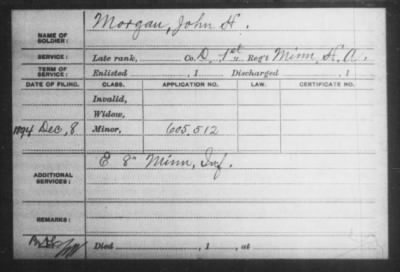 NAME OF SOLDIER: Morgan, John H.
SERVICE: Late rank, Co. D, 1st Reg't Minn. H. A.
TERM OF SERVICE: Enlisted , 1 Discharged , 1
DATE OF FILING. CLASS. APPLICATION NO. LAW. CERTIFICATE NO.
Invalid,
Widow,
1894 Dec, 8 Minor, 605,512
ADDITIONAL SERVICES: E 8" Minn, Inf.
REMARKS:
Died , 1 , at